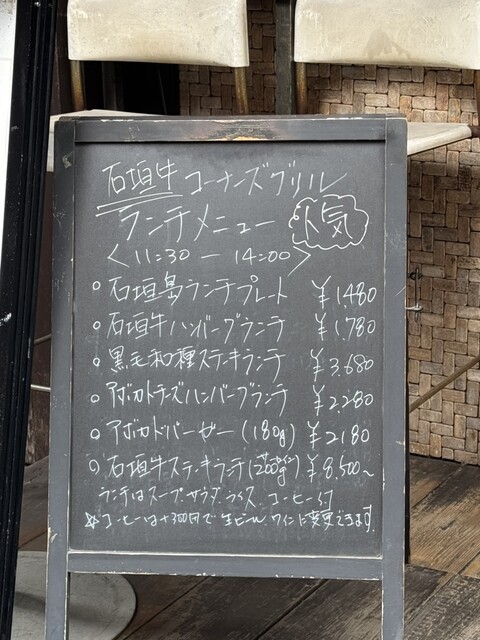 石垣牛 コーナーズグリル
ランチメニュー 人気
<11:30 — 14:00>
○ 石垣島ランチプレート ¥1,480
○ 石垣牛ハンバーグランチ ¥1,780
○ 黒毛和種ステーキランチ ¥3,680
○ アボカドチーズハンバーグランチ ¥2,280
○ アボカドバーガー (180g) ¥2180
○ 石垣牛ステーキランチ (200g) ¥8,500~
ランチはスープ、サラダ、ライス コーヒー付
☆ コーヒーは+300円で生ビール ワインに変更できます。